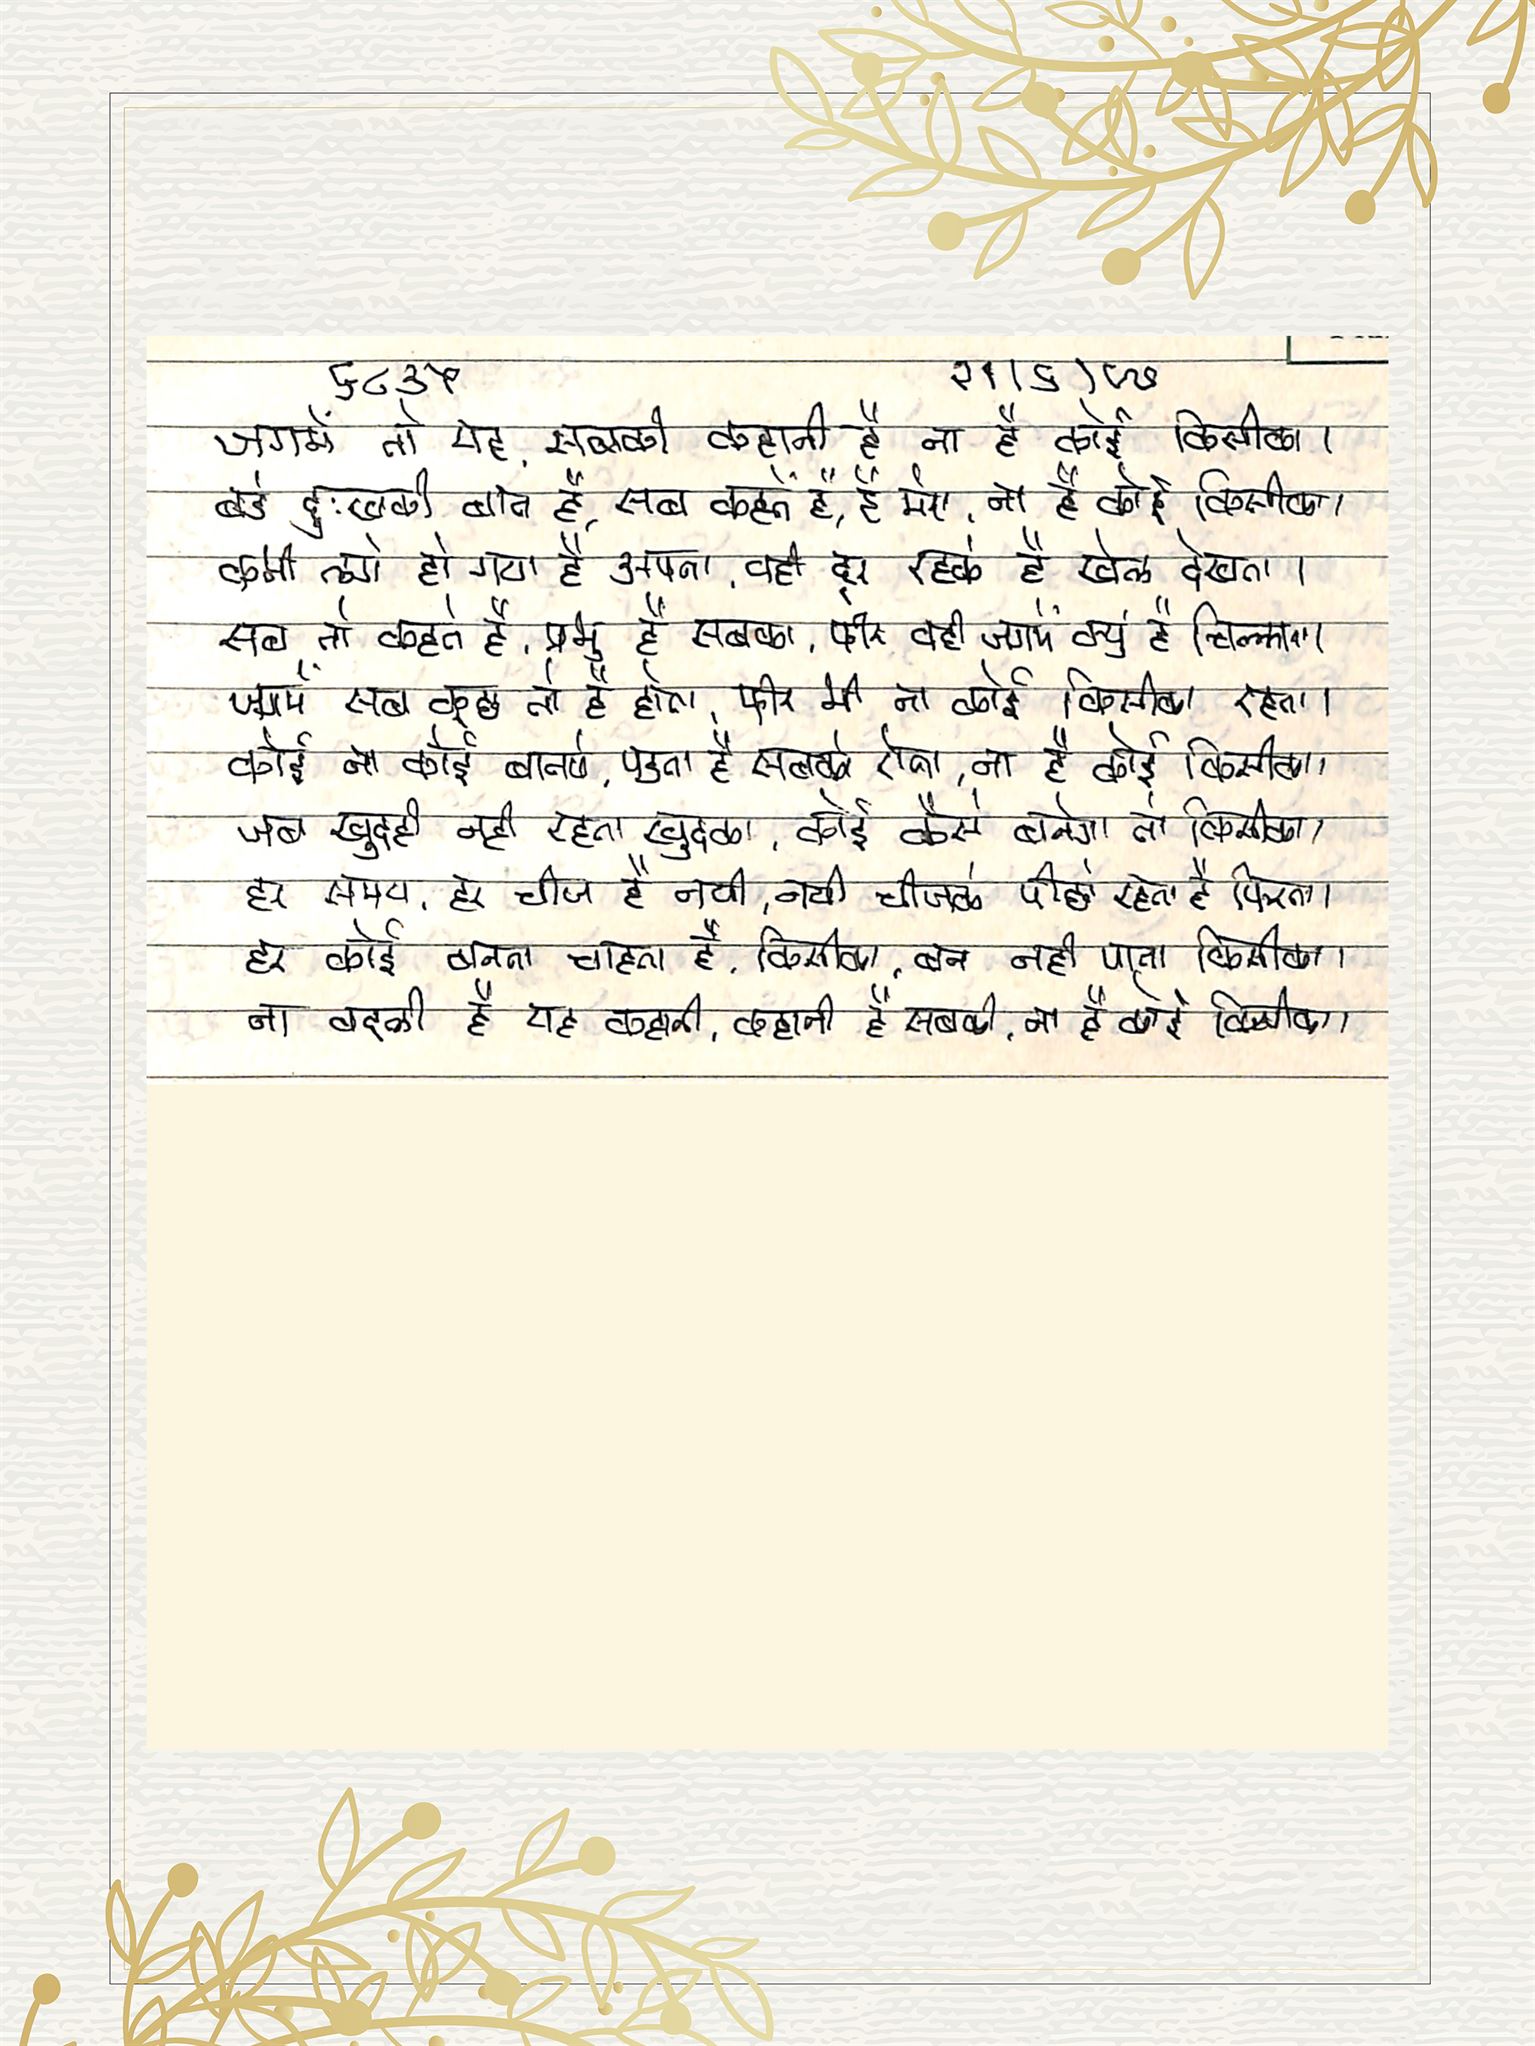 ६८३५ २१।६)९७
जगमें तो यह, सबकी कहानी है ना है कोई किसीका।
बडे दुःखकी बात है, सब कहतें है, है मेरा, ना है कोई किसीका।
कभी लगे हो गया है अपना, वही दूर रहके है खेल देखता।
सब तो कहते है, प्रभु है सबका, फीर वही जगमें क्युं है चिल्लाता।
जगमें सब कुछ तो है होता, फीर भी ना कोई किसीका रहता।
कोई ना कोई बातपे, पडता है सबको रोना, ना है कोई किसीका।
जब खुदही नही रहता खुदका, कोई कैसे बनेगा तो किसीका।
हर समय, हर चीज है नयी, नयी चीजके पीछे रहता है फिरता।
हर कोई बनना चाहता है, किसीका, बन नही पाता किसीका।
ना बदली है यह कहानी, कहानी है सबकी, ना है कोई किसीका।